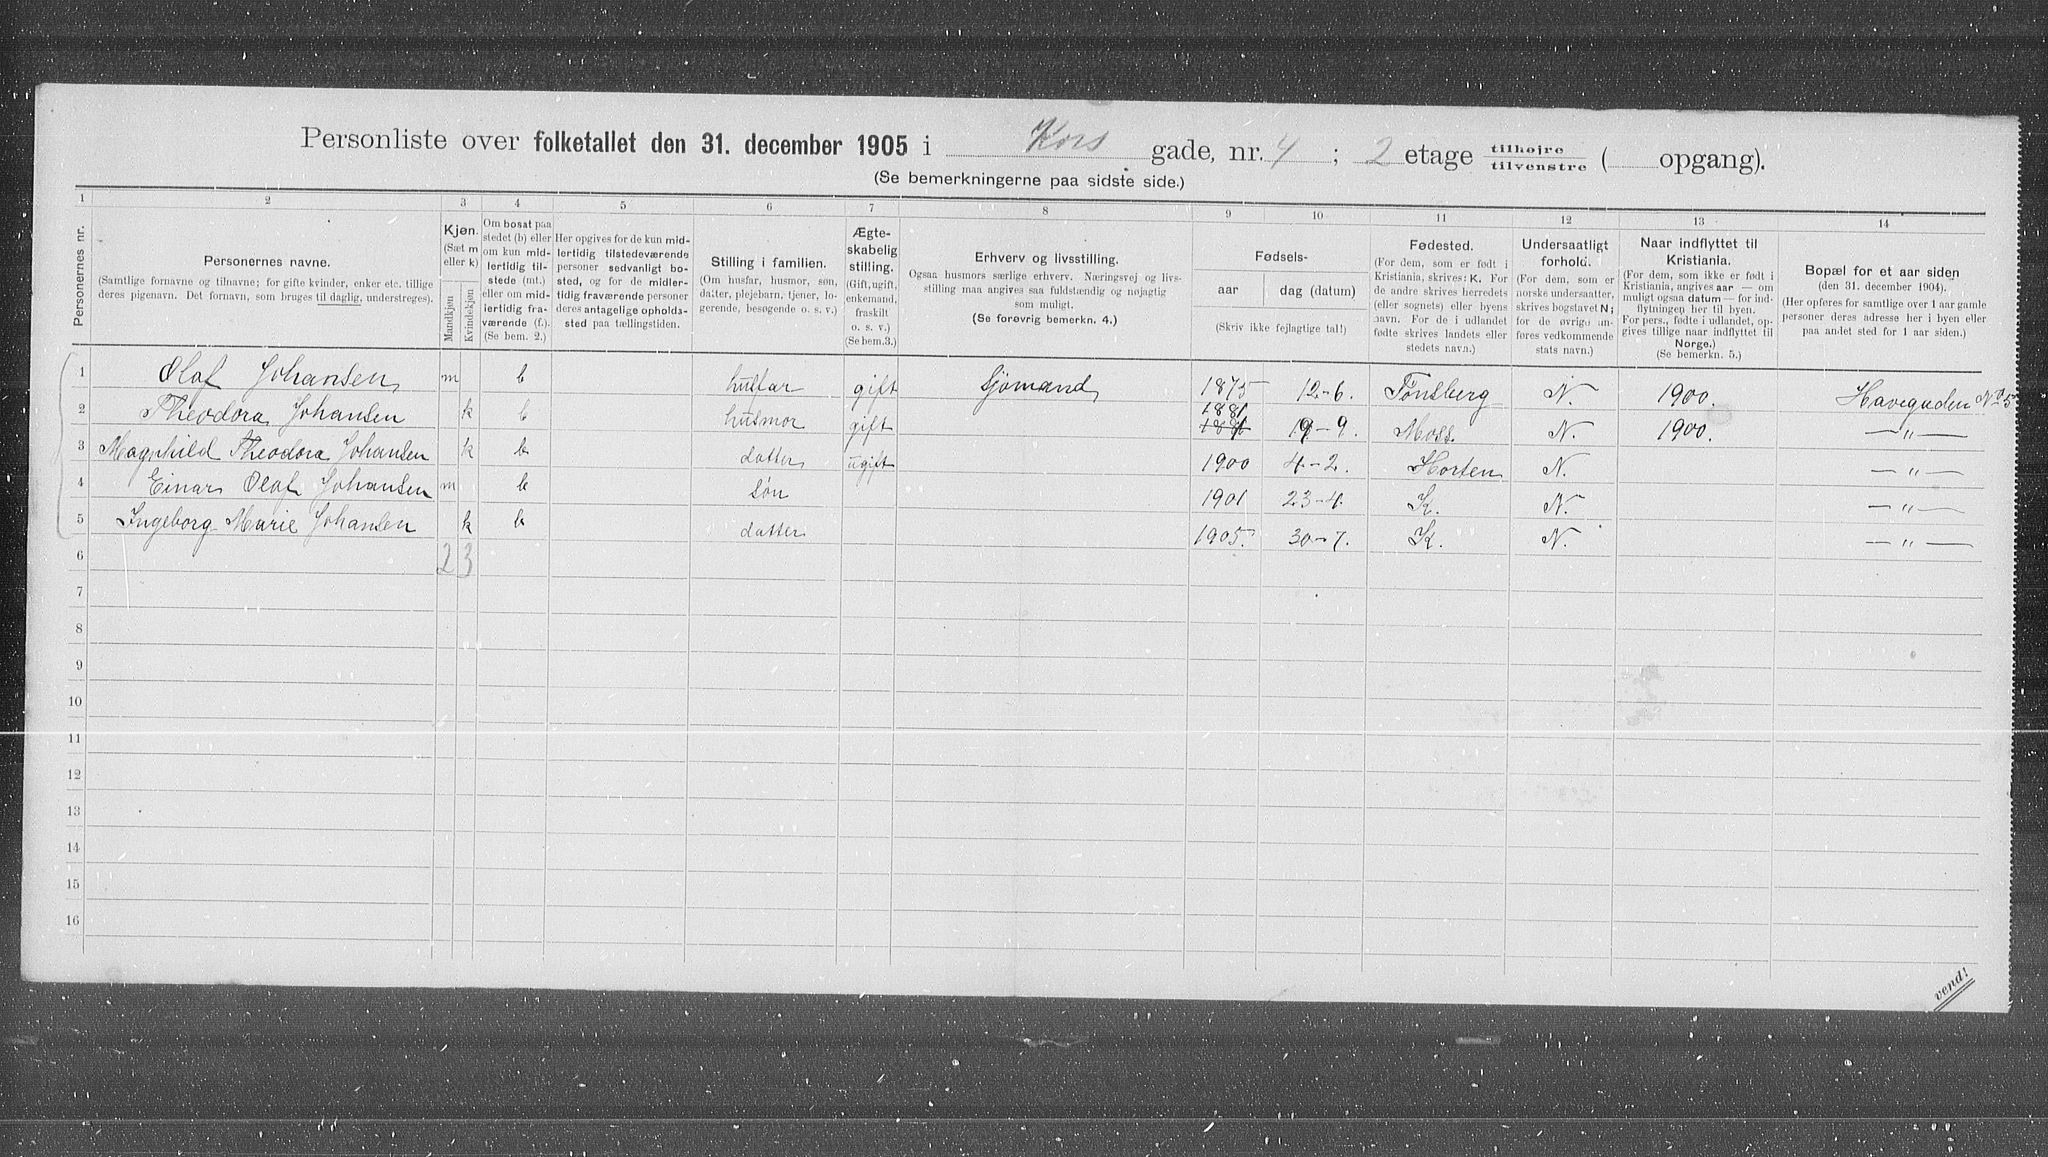 Personliste over folketallet den 31. december 1905 i Kors gade, nr. 4 ; 2 etage tilhøjre tilvenstre ( opgang).
(Se bemerkningerne paa sidste side.)
1 2 3 4 5 6 7 8 9 10 11 12 13 14
Personernes nr.
Personernes navne.
(Samtlige fornavne og tilnavne; for gifte kvinder, enker etc. tillige
deres pigenavn. Det fornavn, som bruges til daglig, understreges).
Kjøn.
(Sæt m
eller k)
Mandkjøn
Kvindekjøn
Om bosat paa
stedet (b) eller
om kun mid-
lertidig til-
stede (mt.)
eller om mid-
lertidig fra-
værende (f.).
(Se bem. 2.)
Her opgives for de kun mid-
lertidig tilstedeværende
personer sedvanlig bo-
sted, og for de midler-
tidig fraværende personer
deres antagelige opholds-
sted paa tællingstiden.
Stilling i familien.
(Om husfar, husmor, søn,
datter, plejebarn, tjener, lo-
gerende, besøgende o. s. v.)
Ægte-
skabelig
stilling.
(Gift, ugift,
enkemand,
fraskilt
o. s. v.)
(Se bem.3.)
Erhverv og livsstilling.
Ogsaa husmors særlige erhverv. Næringsvej og livs-
stilling maa angives saa fuldstændig og nøjagtig
som muligt.
(Se forøvrig bemerkn. 4.)
Fødsels-
aar
dag (datum)
(Skriv ikke fejlagtige tal!)
Fødested.
(For dem, som er født i
Kristiania, skrives: K. For
de andre skrives herredets
(eller sognets) eller byens
navn. For de i udlandet
fødte skrives landets eller
stedets navn.)
Undersaatligt
forhold.
(For dem, som er
norske undersaatter,
skrives bogstavet N;
for de øvrige an-
føres vedkommende
stats navn.)
Naar indflyttet til
Kristiania.
(For dem, som ikke er født i
Kristiania, angives aar — om
muligt ogsaa datum — for ind-
flytningen her til byen.
For pers., fødte i udlandet, op-
gives tillige naar indflyttet til
Norge.)
(Se bemerkn. 5.)
Bopæl for et aar siden
(den 31. december 1904).
(Her opføres for samtlige over 1 aar gamle
personer deres adresse her i byen eller
paa andet sted for 1 aar siden.)
1 Olaf Johansen m b husfar gift Sjømand 1875 12-6. Tønsberg N. 1900. Havegaden No 5
2 Theodora Johansen k b husmor gift 1881 19-9. Moss. N. 1900. — „ —
3 Magnhild Theodora Johansen k b datter ugift 1900 4-2. Horten N. — „ —
4 Einar Olaf Johansen m b søn 1901 23-4. K. N. — „ —
5 Ingeborg Marie Johansen k b datter 1905. 30-7. K. N. — „ —
6 2 3
7
8
9
10
11
12
13
14
15
16
vend!